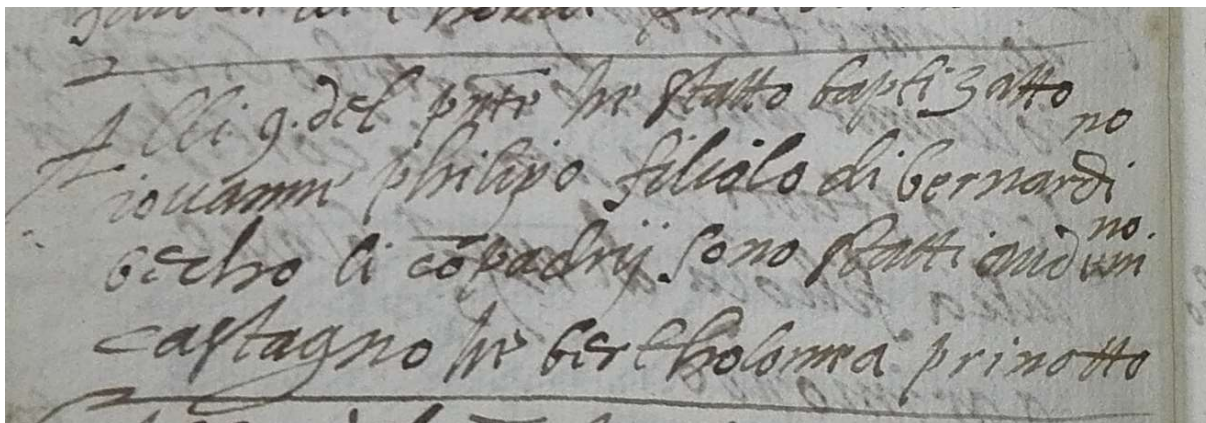 Alli 9. del pnte he statto baptizatto
Giovanni philipo filiolo di bernardino
becho li cōpadrij sono statti
castagno he bertholomea prinotto